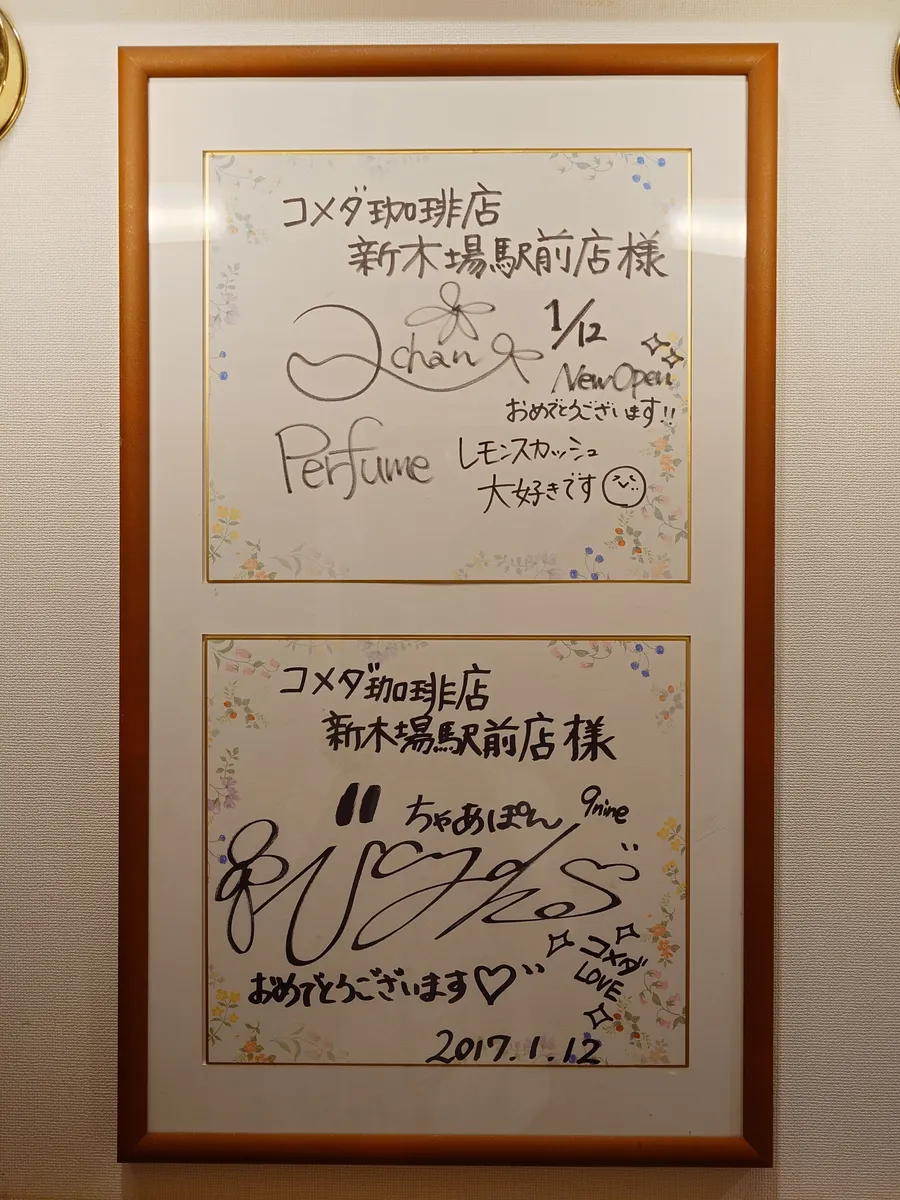 コメダ珈琲店
新木場駅前店様
chan
1/12
New Open
おめでとうございます!!
Perfume
レモンスカッシュ
大好きです
コメダ珈琲店
新木場駅前店様
ちゃあぽん 9nine
おめでとうございます♡
コメダ
LOVE
2017.1.12